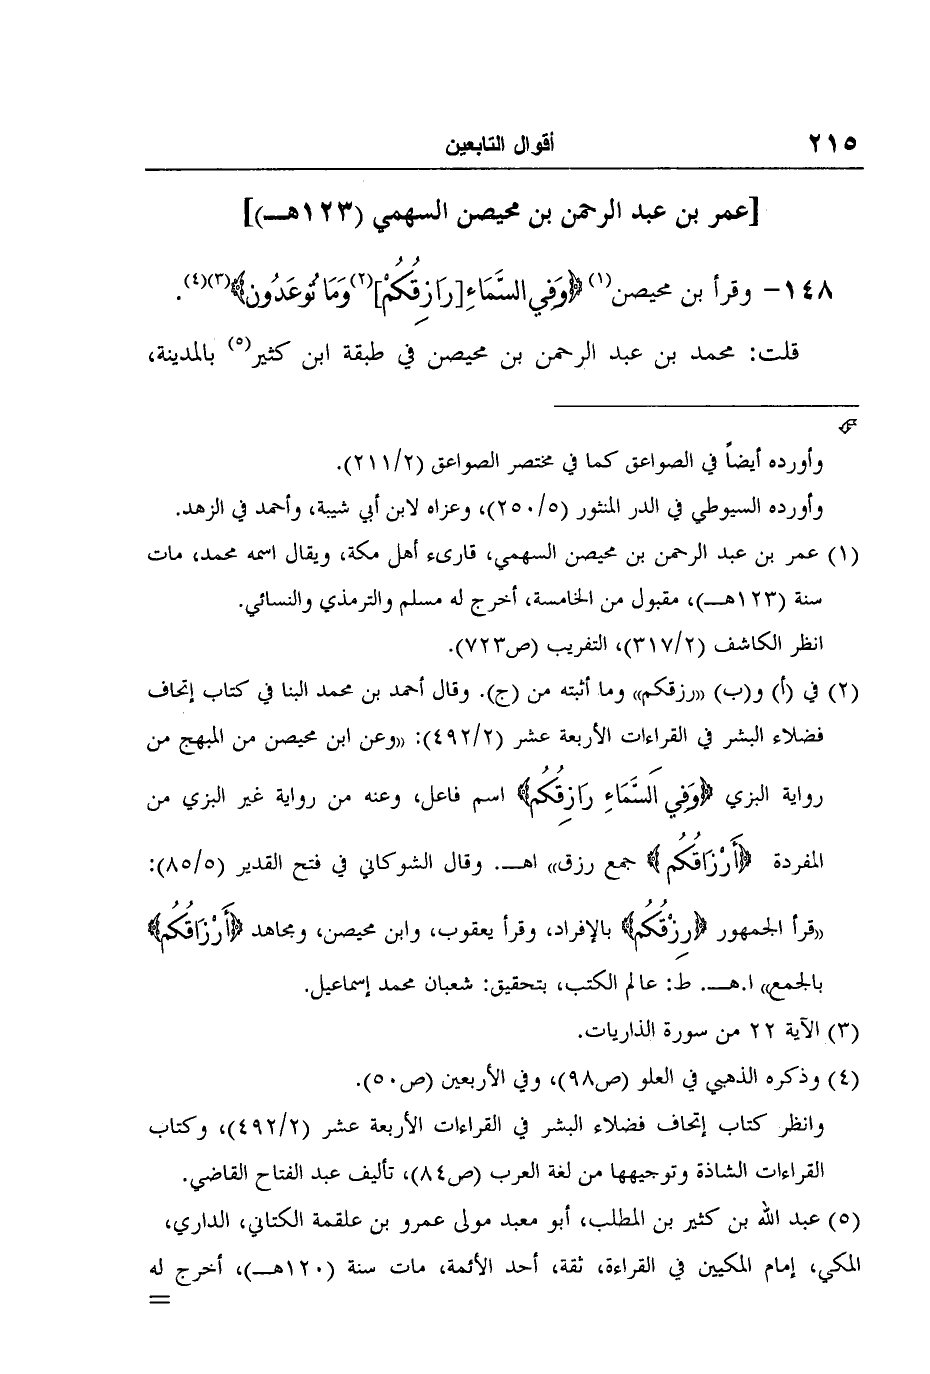 ٢١٥ أقوال التابعين
[عمر بن عبد الرحمن بن محيصن السهمي (١٢٣هـ)]
١٤٨- وقرأ بن محيصن(١) ﴿وَفِي السَّمَاءِ [رَازِقُكُمْ](٢) وَمَا تُوعَدُون﴾(٣)(٤).
قلت: محمد بن عبد الرحمن بن محيصن في طبقة ابن كثير(٥) بالمدينة،
وأورده أيضاً في الصواعق كما في مختصر الصواعق (٢١١/٢).
وأورده السيوطي في الدر المنثور (٢٥٠/٥)، وعزاه لابن أبي شيبة، وأحمد في الزهد.
(١) عمر بن عبد الرحمن بن محيصن السهمي، قارىء أهل مكة، ويقال اسمه محمد، مات
سنة (١٢٣هـ)، مقبول من الخامسة، أخرج له مسلم والترمذي والنسائي.
انظر الكاشف (٣١٧/٢)، التقريب (ص٧٢٣).
(٢) في (أ) و(ب) «رزقكم» وما أثبته من (ج). وقال أحمد بن محمد البنا في كتاب إتحاف
فضلاء البشر في القراءات الأربعة عشر (٤٩٢/٢): «وعن ابن محيصن من المبهج من
رواية البزي ﴿وَفِي السَّمَاءِ رَازِقُكُم﴾ اسم فاعل، وعنه من رواية غير البزي من
المفردة ﴿أَرْزَاقُكُم﴾ جمع رزق» اهـ. وقال الشوكاني في فتح القدير (٨٥/٥):
«قرأ الجمهور ﴿رِزْقُكُم﴾ بالإفراد، وقرأ يعقوب، وابن محيصن، ومجاهد ﴿أَرْزَاقُكُم﴾
بالجمع» ا.هـ. ط: عالم الكتب، بتحقيق: شعبان محمد إسماعيل.
(٣) الآية ٢٢ من سورة الذاريات.
(٤) وذكره الذهبي في العلو (ص٩٨)، وفي الأربعين (ص٥٠).
وانظر كتاب إتحاف فضلاء البشر في القراءات الأربعة عشر (٤٩٢/٢)، وكتاب
القراءات الشاذة وتوجيهها من لغة العرب (ص٨٤)، تأليف عبد الفتاح القاضي.
(٥) عبد الله بن كثير بن المطلب، أبو معبد مولى عمرو بن علقمة الكتاني، الداري،
المكي، إمام المكيين في القراءة، ثقة، أحد الأئمة، مات سنة (١٢٠هـ)، أخرج له
=